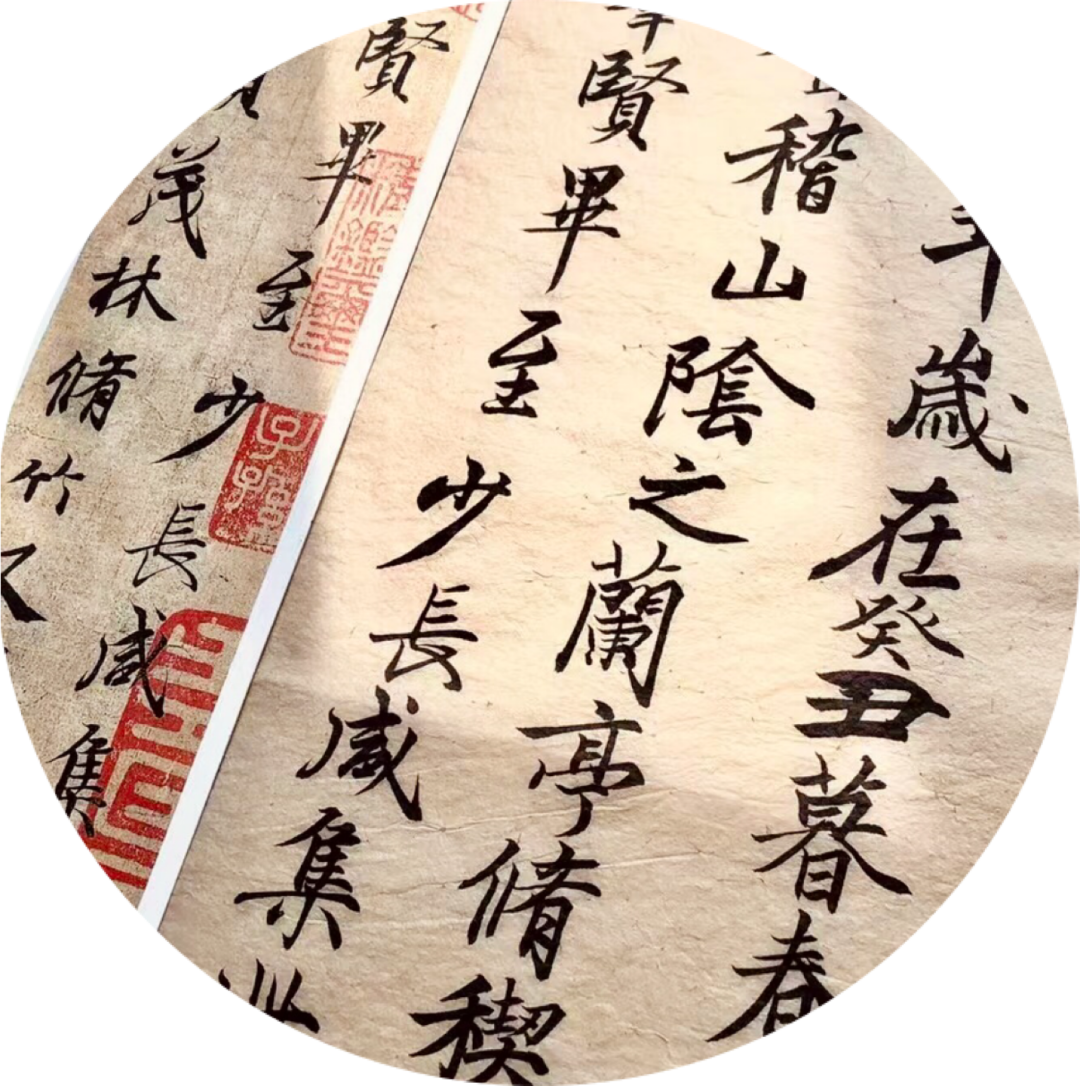 年歲在癸丑暮春
稽山陰之蘭亭脩稧
賢畢至少長咸集
賢畢至少長咸集
茂林脩竹又